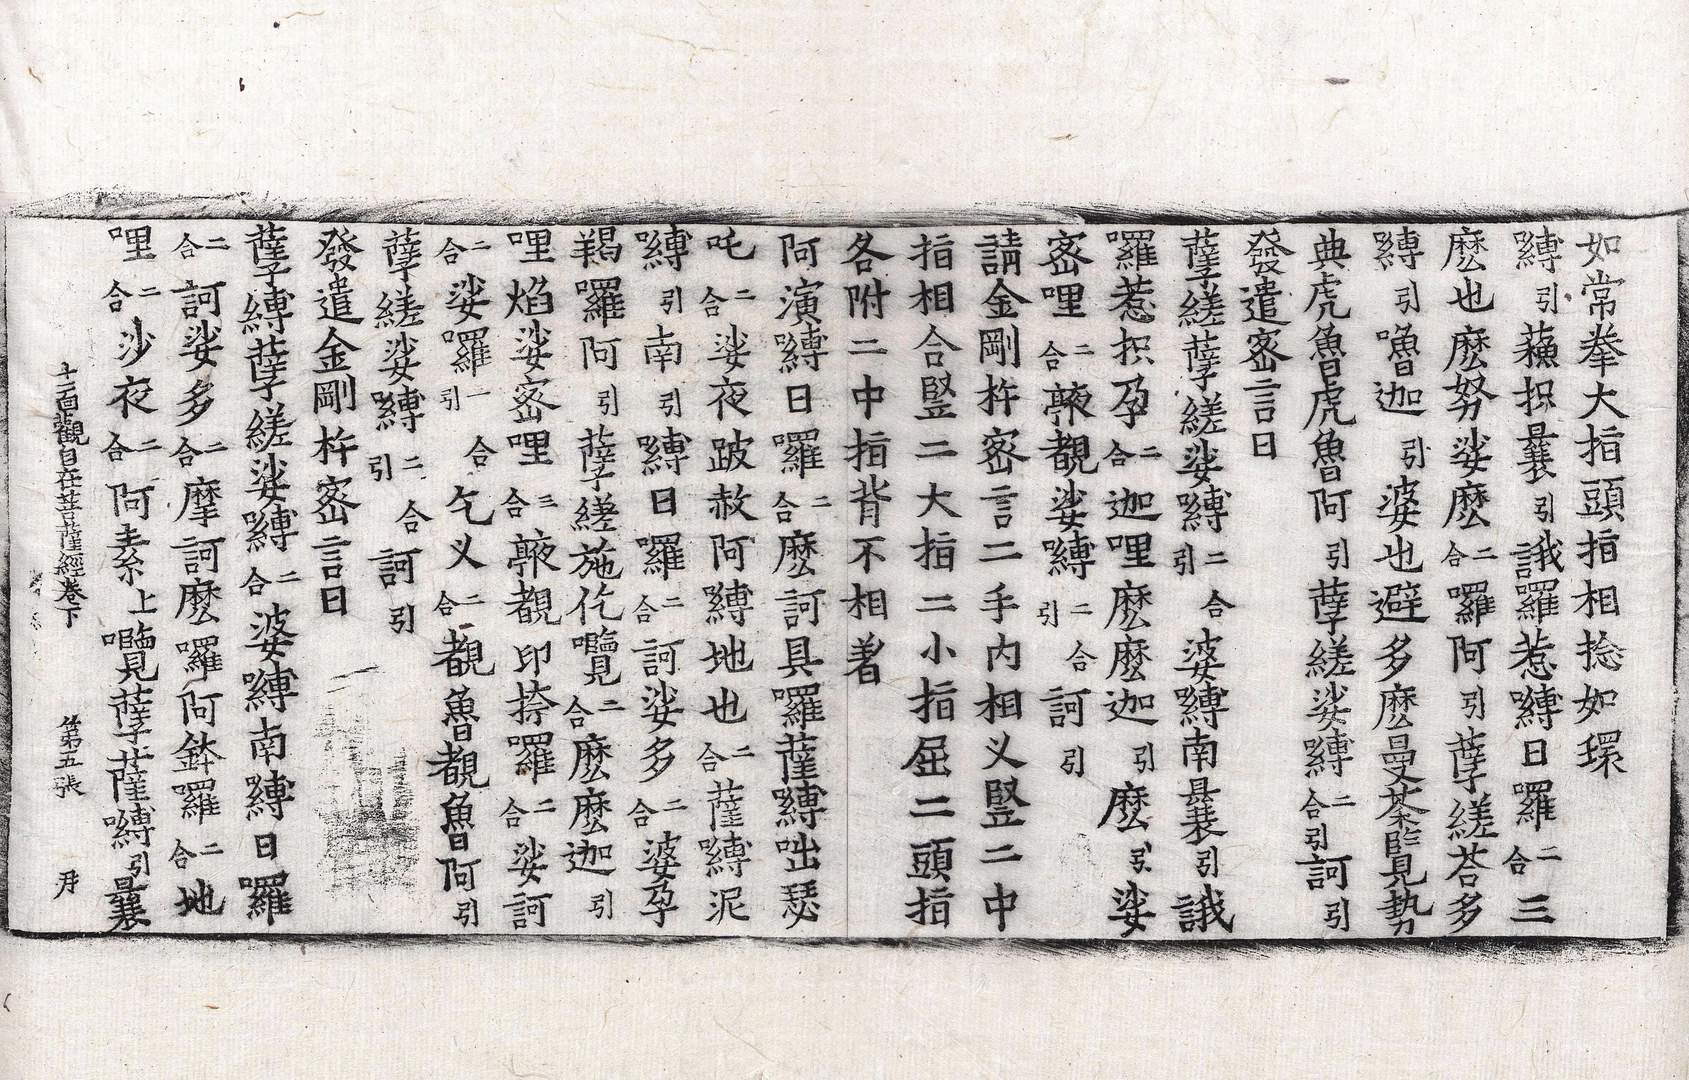 如常拳大指頭指相捻如環
嚩引蘓抧曩引誐羅惹嚩日囉二合三
麽也麽努娑麽二合囉阿引孽縒荅多
嚩引嚕迦引婆也避多麽曼茶𭊌勢
典虎魯虎魯阿引孽縒娑嚩二合引訶引
發遣宻言曰
孽縒孽縒娑嚩二合引婆嚩南曩引誐
囉惹抧孕二合迦哩麽麽迦引麽引娑
宻哩二合㮇覩娑嚩二合引訶引
請金剛杵宻言二手内相义竪二中
指相合竪二大指二小指屈二頭指
各附二中指背不相著
阿演嚩日囉二合麽訶具囉薩嚩咄瑟
吒二合娑夜跛赦阿嚩地也二合薩嚩泥
嚩引南引嚩日囉二合訶娑多二合婆孕
羯囉阿引孽縒施仡𭊌二合麽麽迦引
哩焰娑宻哩三合㮇覩印捺囉二合娑訶
二合娑囉一合引乞义二合覩魯覩魯阿引
孽縒娑嚩二合引訶引
發遣金剛杵宻言曰
孽嚩孽縒娑嚩二合婆嚩南嚩日囉
二合訶娑多二合摩訶麽囉阿鉢囉二合地
哩二合沙夜二合阿素上𭊌孽薩嚩引曩
十一面觀自在菩薩經卷下　第五張　丹